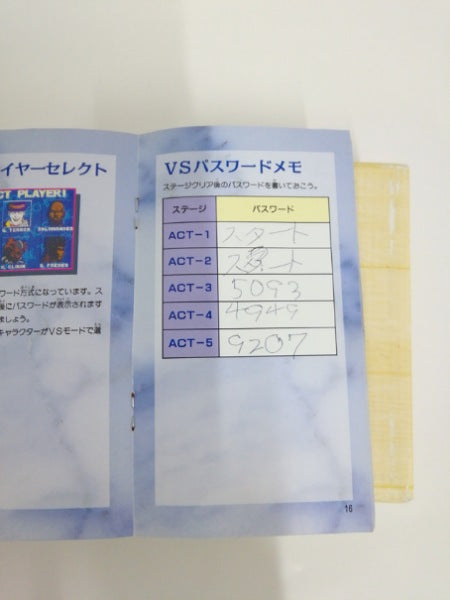 イヤーセレクト
CT PLAYER!
ワード方式になっています。ス
後にパスワードが表示されます
ましょう。
キャラクターがVSモードで選
VSパスワードメモ
ステージクリア後のパスワードを書いておこう。
ステージ パスワード
ACT-1 スタート
ACT-2
ACT-3 5093
ACT-4 4949
ACT-5 9207
16